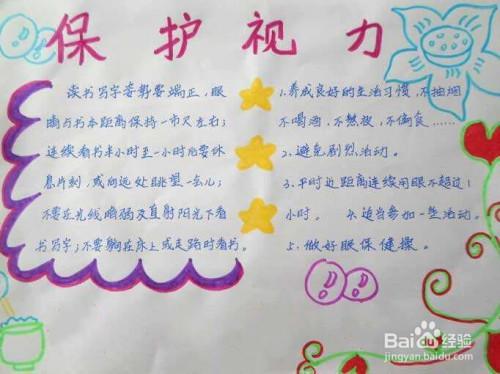 保护视力
读书写字姿势要端正,眼
睛与书本距离保持一市尺左右;
连续看书半小时至一小时后要休
息片刻,或向远处眺望一会儿;
不要在光线暗弱及直射阳光下看
书写字;不要躺在床上或走路时看书。
1.养成良好的生活习惯,不抽烟
不喝酒,不熬夜,不偏食……
2.避免剧烈活动。
3.平时近距离连续用眼不超过1
小时。 4.适当参加一些活动。
5.做好眼保健操。
Baidu经验
jingyan.baidu.com